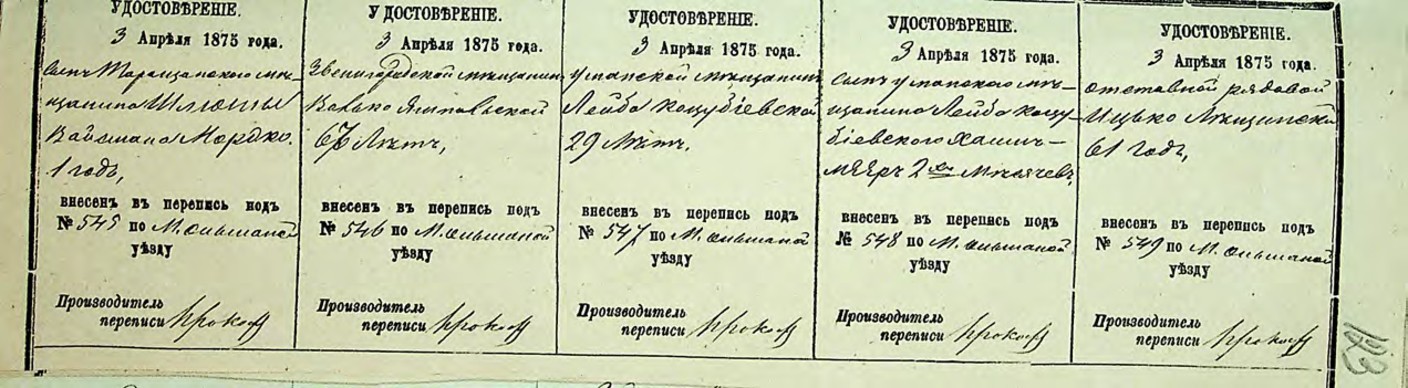 УДОСТОВѢРЕНІЕ.
3 Апрѣля 1875 года.
Сынъ Таращанского мѣ-
щанина Шлiомы
Вайсмана Мордко.
1 годъ,
внесенъ въ перепись подъ
№ 545 по М. Ольшаной
уѣзду
Производитель
переписи
УДОСТОВѢРЕНІЕ.
3 Апрѣля 1875 года.
Звенигородской мѣщанин
67 Лѣтъ,
внесенъ въ перепись подъ
№ 546 по М. Ольшаной
уѣзду
Производитель
переписи
УДОСТОВѢРЕНІЕ.
3 Апрѣля 1875 года.
Уманской мѣщанинъ
Лейба Коцубіевской
29 Лѣтъ.
внесенъ въ перепись подъ
№ 547 по М. Ольшаной
уѣзду
Производитель
переписи
УДОСТОВѢРЕНІЕ.
3 Апрѣля 1875 года.
Сынъ уманского мѣ-
щанина Лейбы Коцу-
біевского Хаимъ-
Мееръ 2хъ Мѣсячевъ,
внесенъ въ перепись подъ
№ 548 по М. Ольшаной
уѣзду
Производитель
переписи
УДОСТОВѢРЕНІЕ.
3 Апрѣля 1875 года.
отставной рядовой
Ицько Лѣщинской
61 Годъ,
внесенъ въ перепись подъ
№ 549 по М. Ольшаной
уѣзду
Производитель
переписи